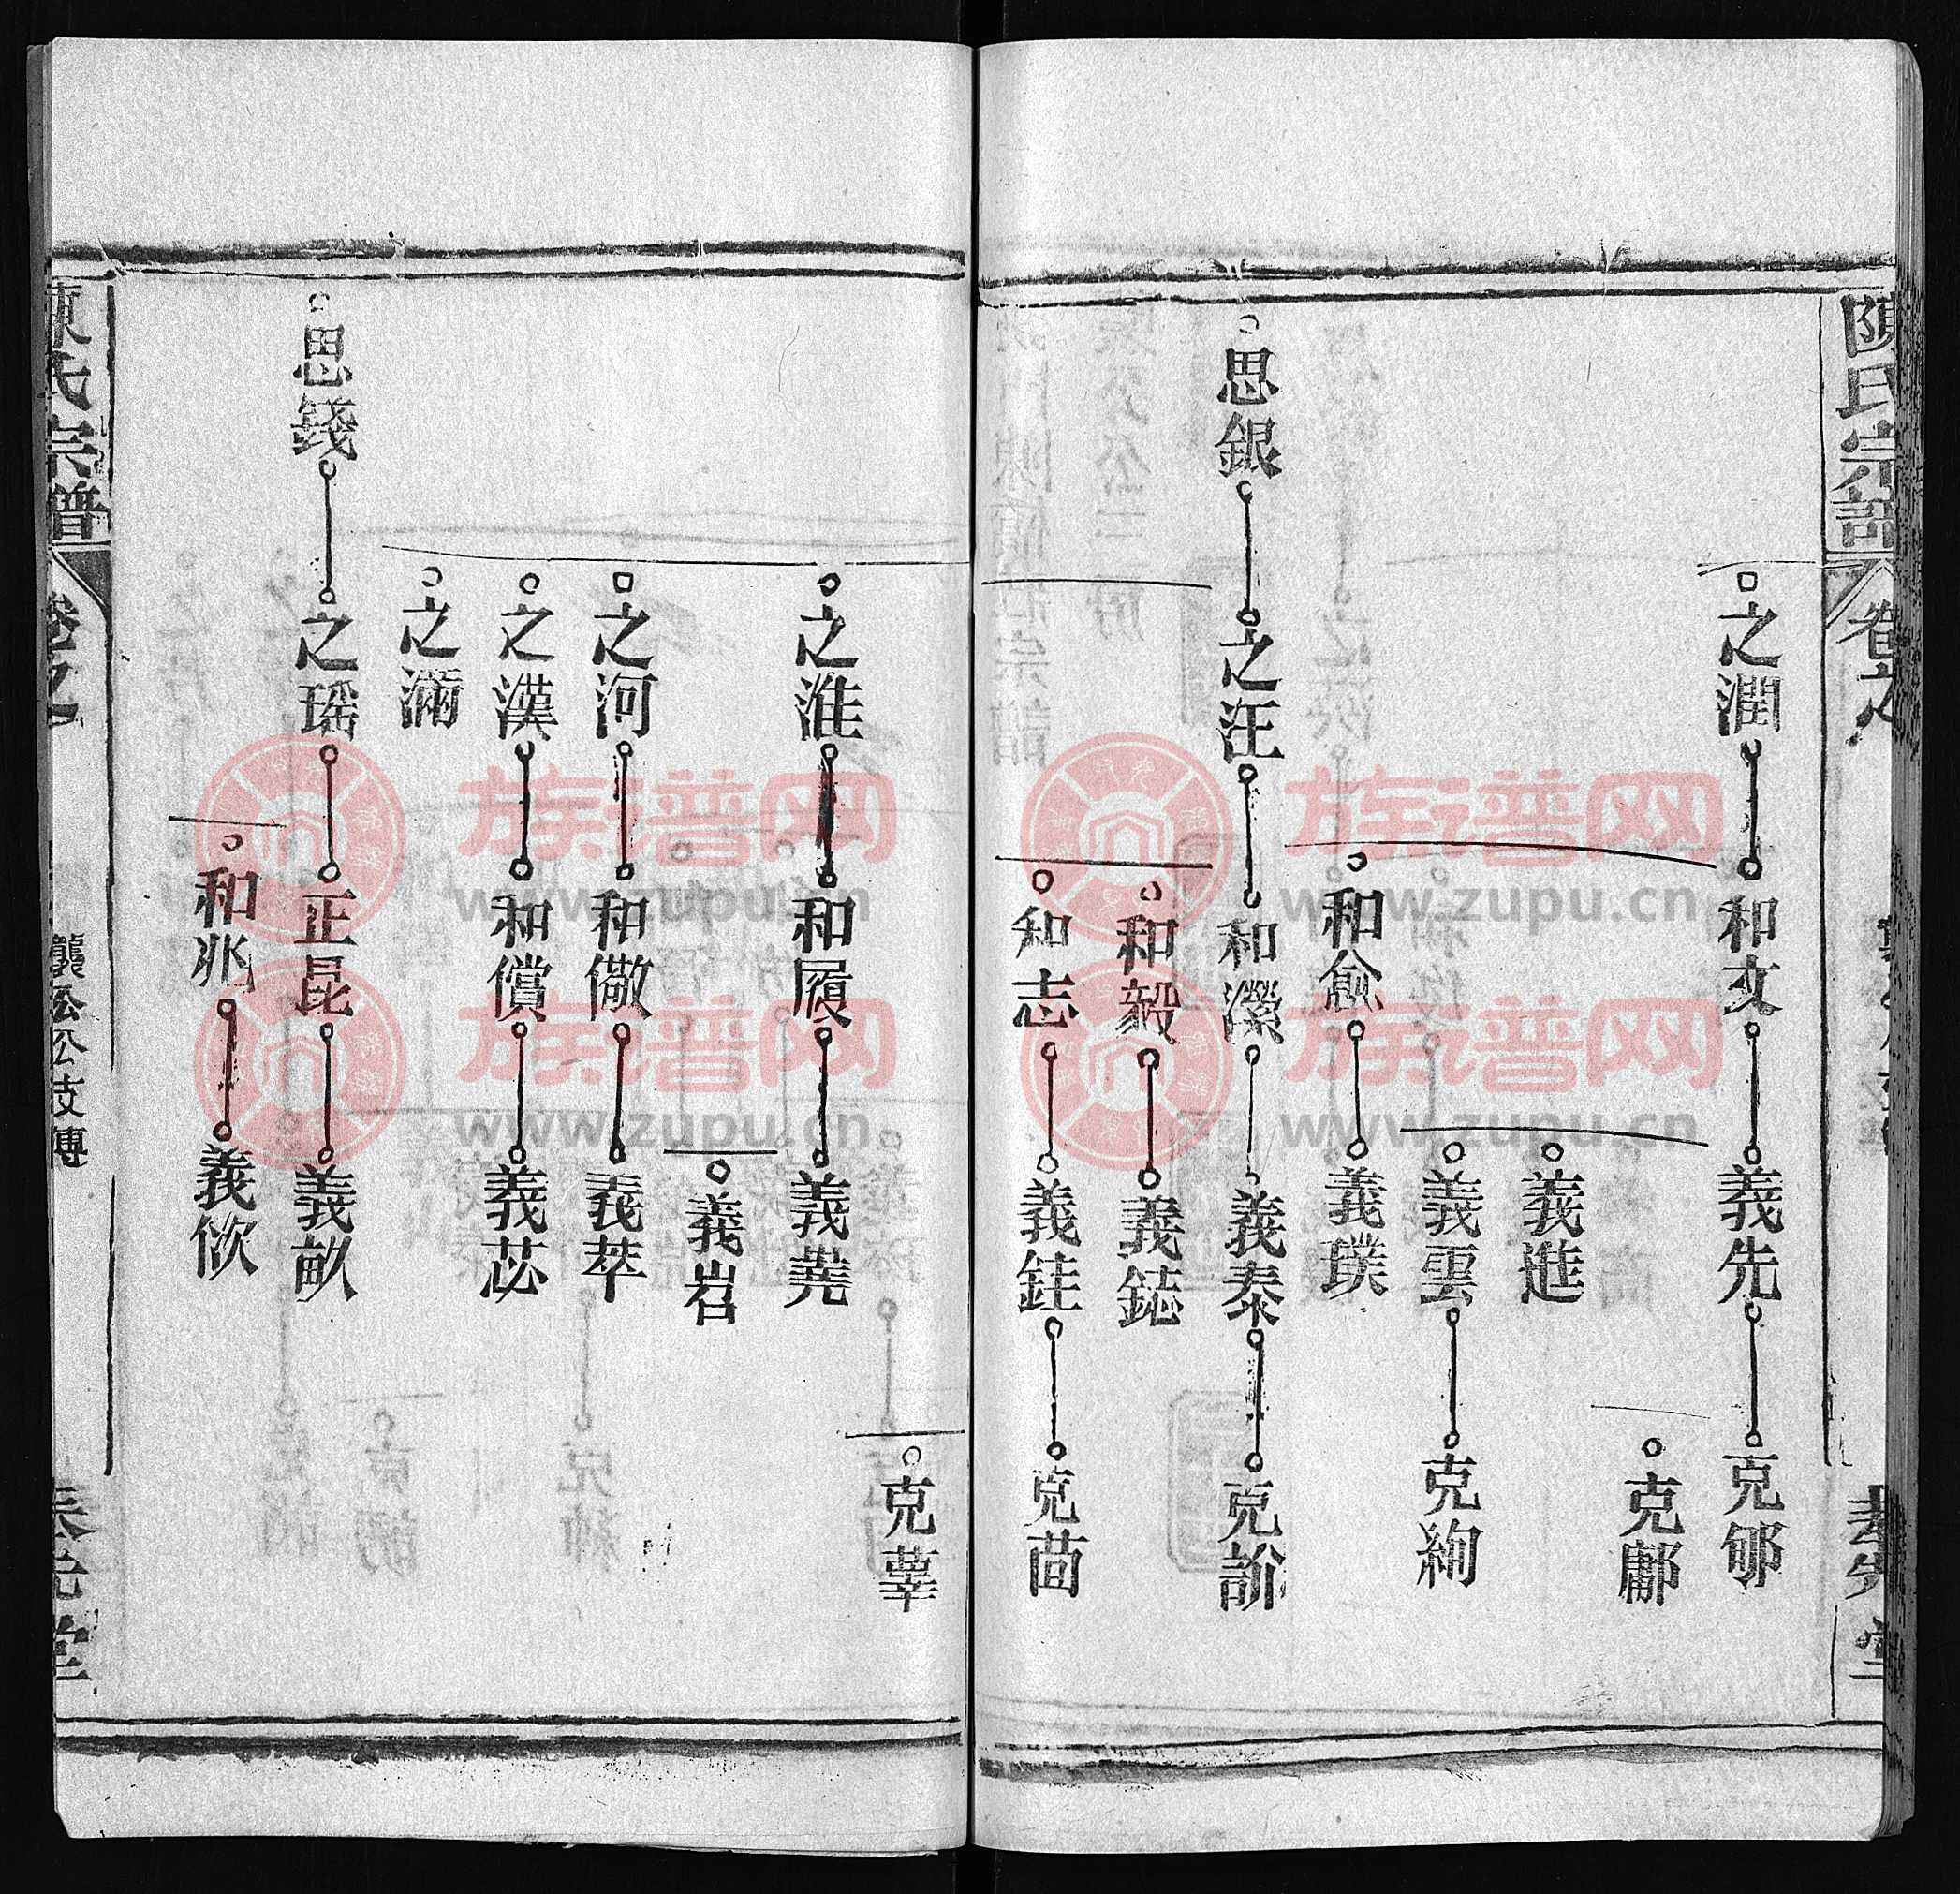 陳氏宗譜
卷之
堂
之潤
和文
義先
克郇
克鄘
義進
義雲
克絢
和愈
義璞
思銀
之汪
和濚
義泰
克訜
和毅
義鋕
和志
義銈
克莔
克蕇
之淮
和履
義蕘
義岩
之河
和儆
義萃
之漢
和償
義苾
之滿
思錢
之瑤
正昆
義畝
和兆
義饮
陳氏宗譜
卷之
襲公公支傳
奉先堂
族谱网
www.zupu.cn
族谱网
www.zupu.cn
族谱网
www.zupu.cn
族谱网
www.zupu.cn